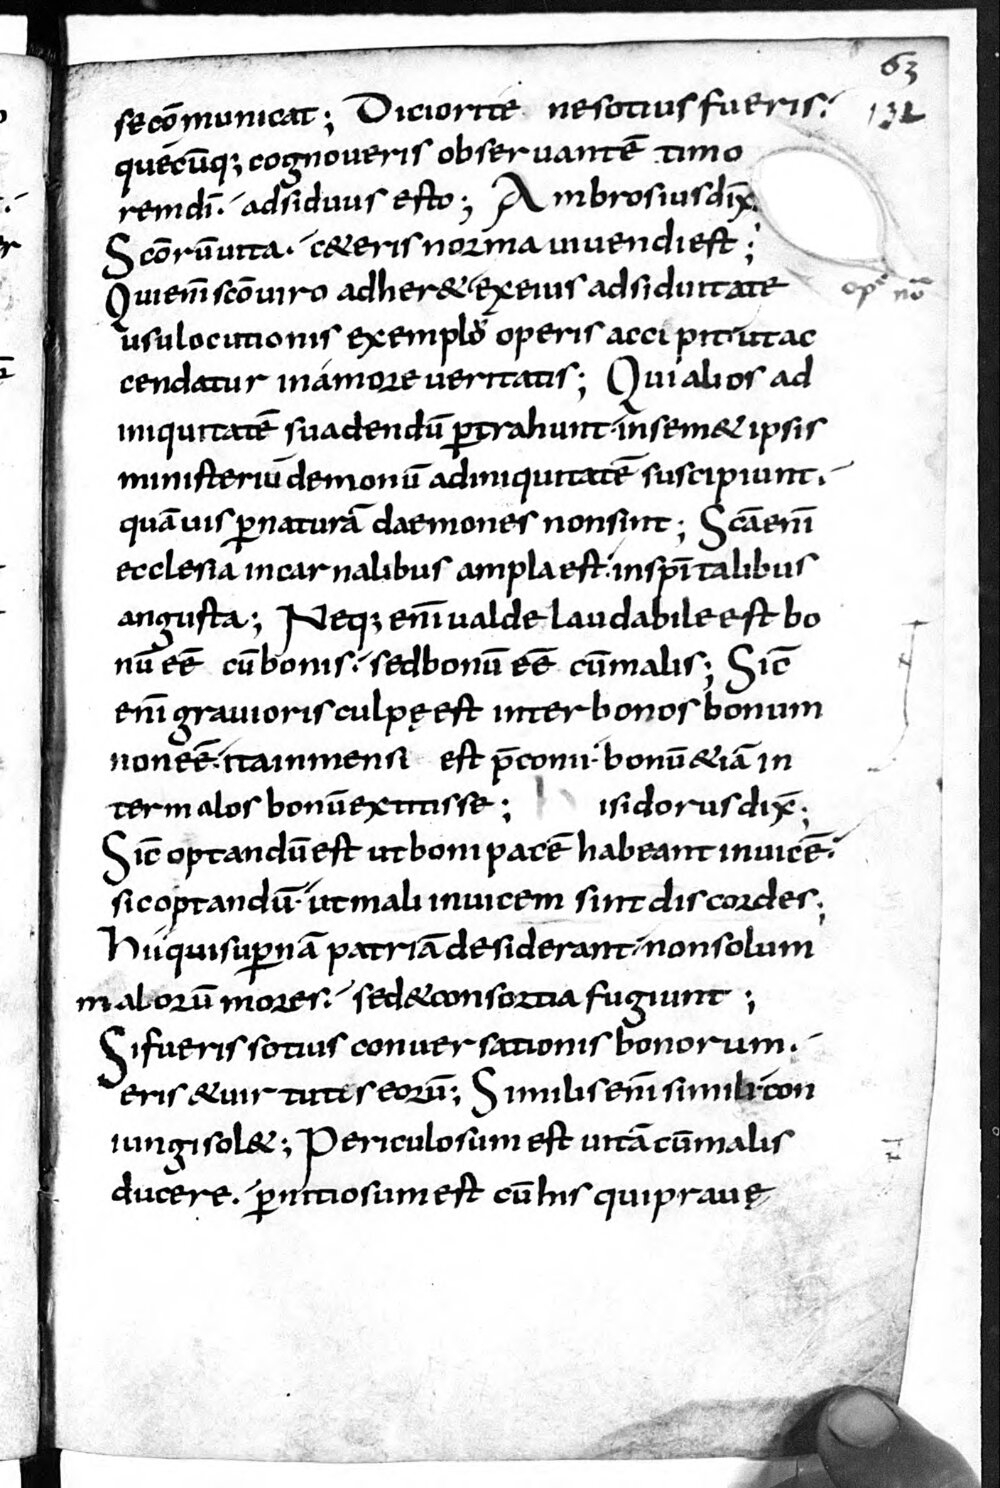 63
132
secōmunicat; Diciorite nesotius fueris.
quēcūq; cognoueris obseruantē timo
remdī. adsiduus esto; Ambrosius dix̄.
Scōrū uita. c&eris norma uiuendi est;
Qui enī scō uiro adher& ex eius adsiduitate
usu locutionis exemplo operis accipit ut ac
cendatur in amore ueritatis; Qui alios ad
iniquitatē suadendū ꝑtrahunt. in sem& ipsis
ministeriū demonū ad iniquitatē suscipiunt.
quāuis ꝑ naturā daemones non sint; Scā enī
ecclesia in carnalibus ampla est. in spītalibus
angusta; Neq; enī ualde laudabile est bo
nū eē cū bonis. sed bonū eē cū malis; Sic̄
enī grauioris culpę est inter bonos bonum
non eē. ita inmensi est p̄conii. bonū &iā in
ter malos bonū extitisse; isidorus dix̄;
Sic̄ optandū est ut boni pacē habeant inuicē.
sic optandū. ut mali inuicem sint discordes;
Hii qui suꝑnā patriā desiderant. non solum
malorū mores. sed & consortia fugiunt;
Si fueris sotius conuersationis bonorum.
eris & uirtutis eorū; Similis enī simili con
iungi sol&; Periculosum est uitā cū malis
ducere. ꝑnitiosum est cū his qui prauę